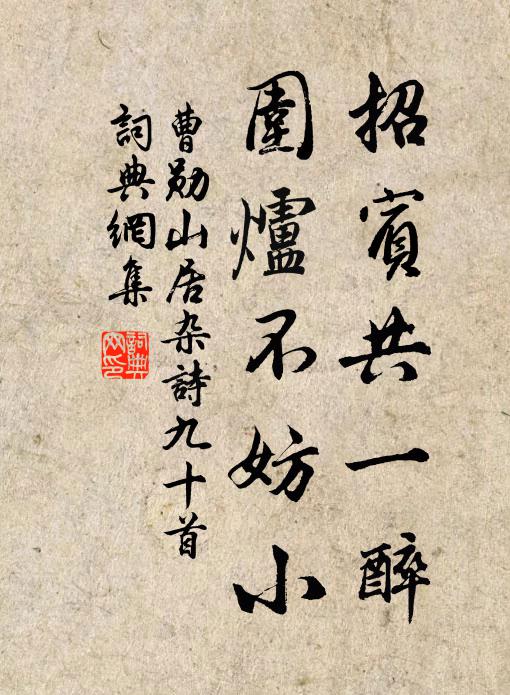 招賓共一醉
圍爐不妨小
曹勛山居杂詩九十首
詞典網集
詞典
网印